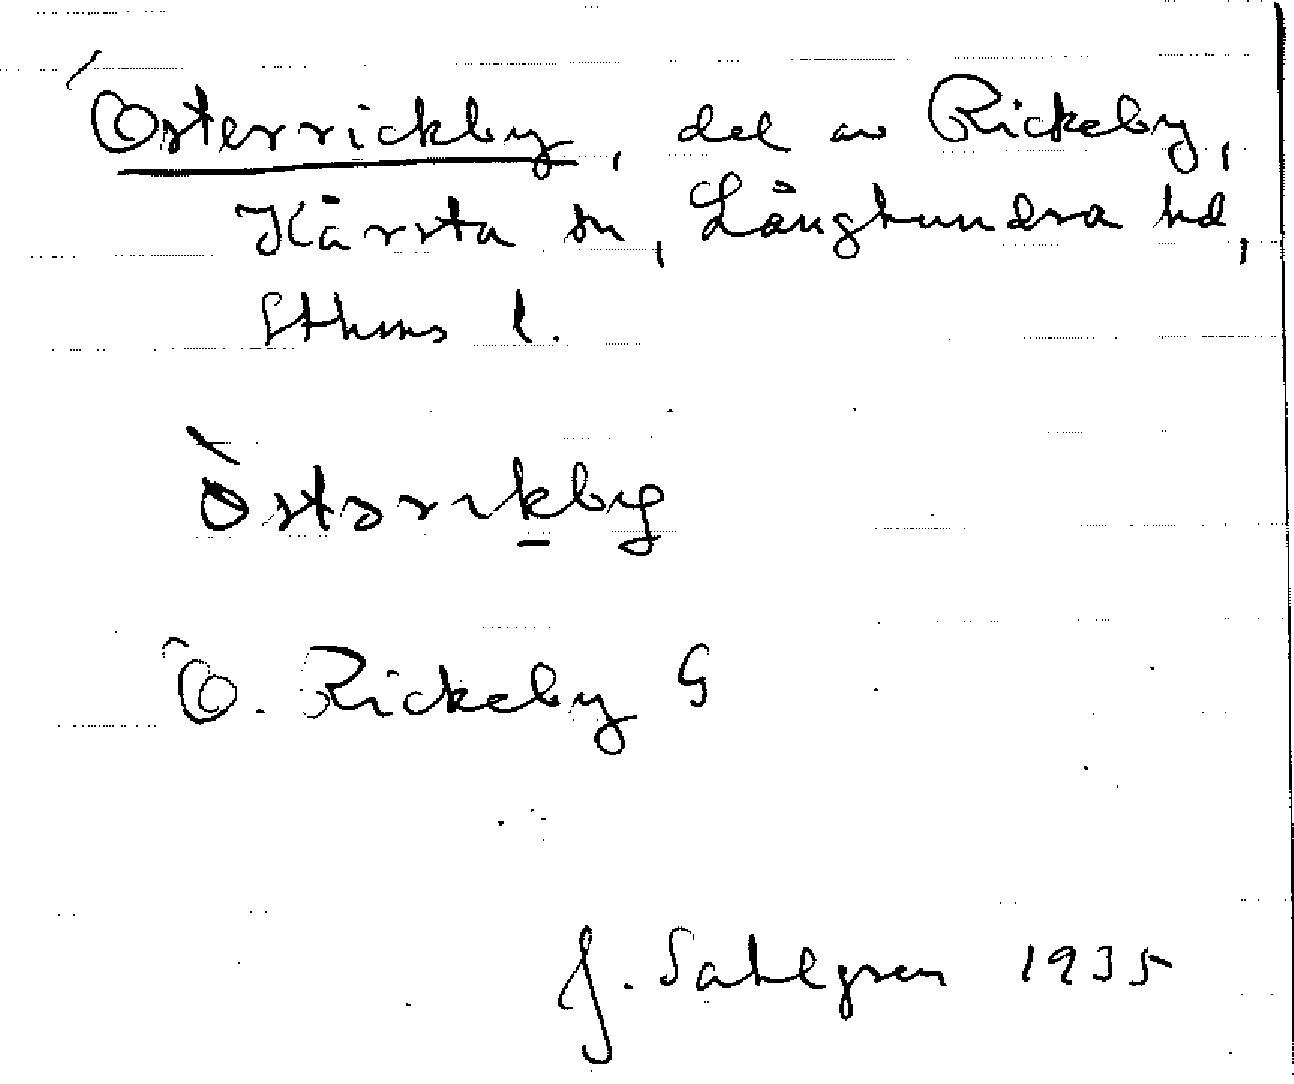 Österrickby, del av Rickeby,
Kårsta sn, Långhundra hd,
Sthms l.
Östərikby
Ö. Rickeby G
J. Sahlgren 1935